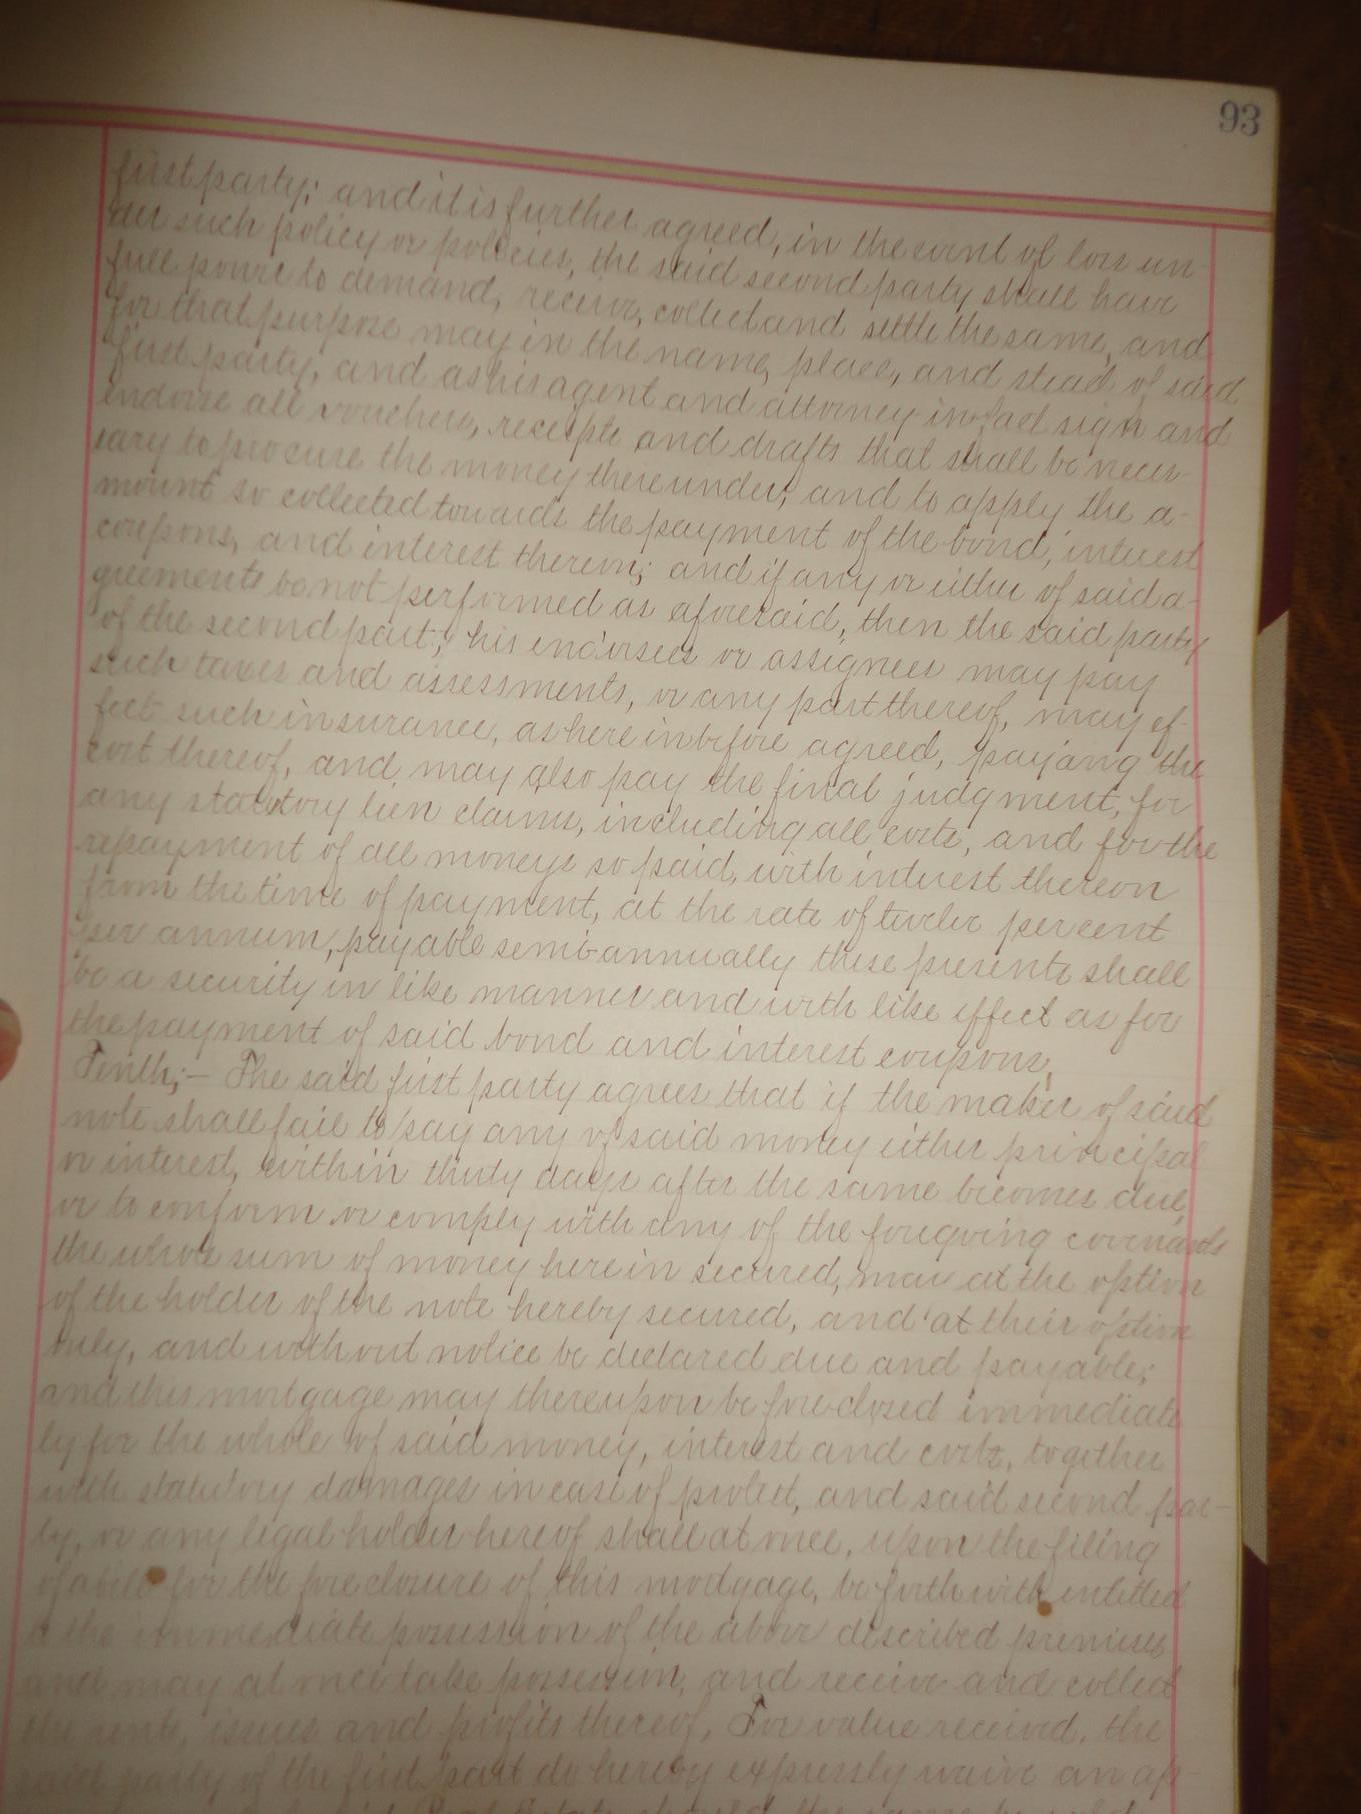 93
first party; and it is further agreed, in the event of loss un-
der such policy or policies, the said second party shall have
full power to demand, receive, collect and settle the same, and
for that purpose may in the name, place, and stead of said
first party, and as his agent and attorney in fact sign and
endorse all vouchers, receipts and drafts that shall be neces-
sary to procure the money thereunder, and to apply the a-
mount so collected towards the payment of the bond, interest
coupons, and interest thereon; and if any or either of said a-
greements be not performed as aforesaid, then the said party
of the second part, his endorsees or assignees may pay
such taxes and assessments, or any part thereof, may ef-
fect such insurance, as here in before agreed, paying the
cost thereof, and may also pay the final judgment, for
any statutory lien claims, including all costs, and for the
repayment of all moneys so paid, with interest thereon
from the time of payment, at the rate of twelve per cent
per annum, payable semi-annually these presents shall
be a security in like manner and with like effect as for
the payment of said bond and interest coupons.
Tenth;- The said first party agrees that if the maker of said
note shall fail to pay any of said money either principal
or interest, within thirty days after the same becomes due,
or to conform or comply with any of the foregoing covenants
the whole sum of money herein secured, may at the option
of the holder of the note hereby secured, and at their option
only, and without notice be declared due and payable;
and this mortgage may thereupon be foreclosed immediate
ly for the whole of said money, interest and costs, together
with statutory damages in case of protest, and said second par-
ty, or any legal holder hereof shall at once, upon the filing
of a bill for the foreclosure of this mortgage, be forthwith intitled
to the immediate possession of the above described premises
and may at once take possession, and receive and collect
the rents, issues and profits thereof. For value received, the
said party of the first part do hereby expressly waive an ap-